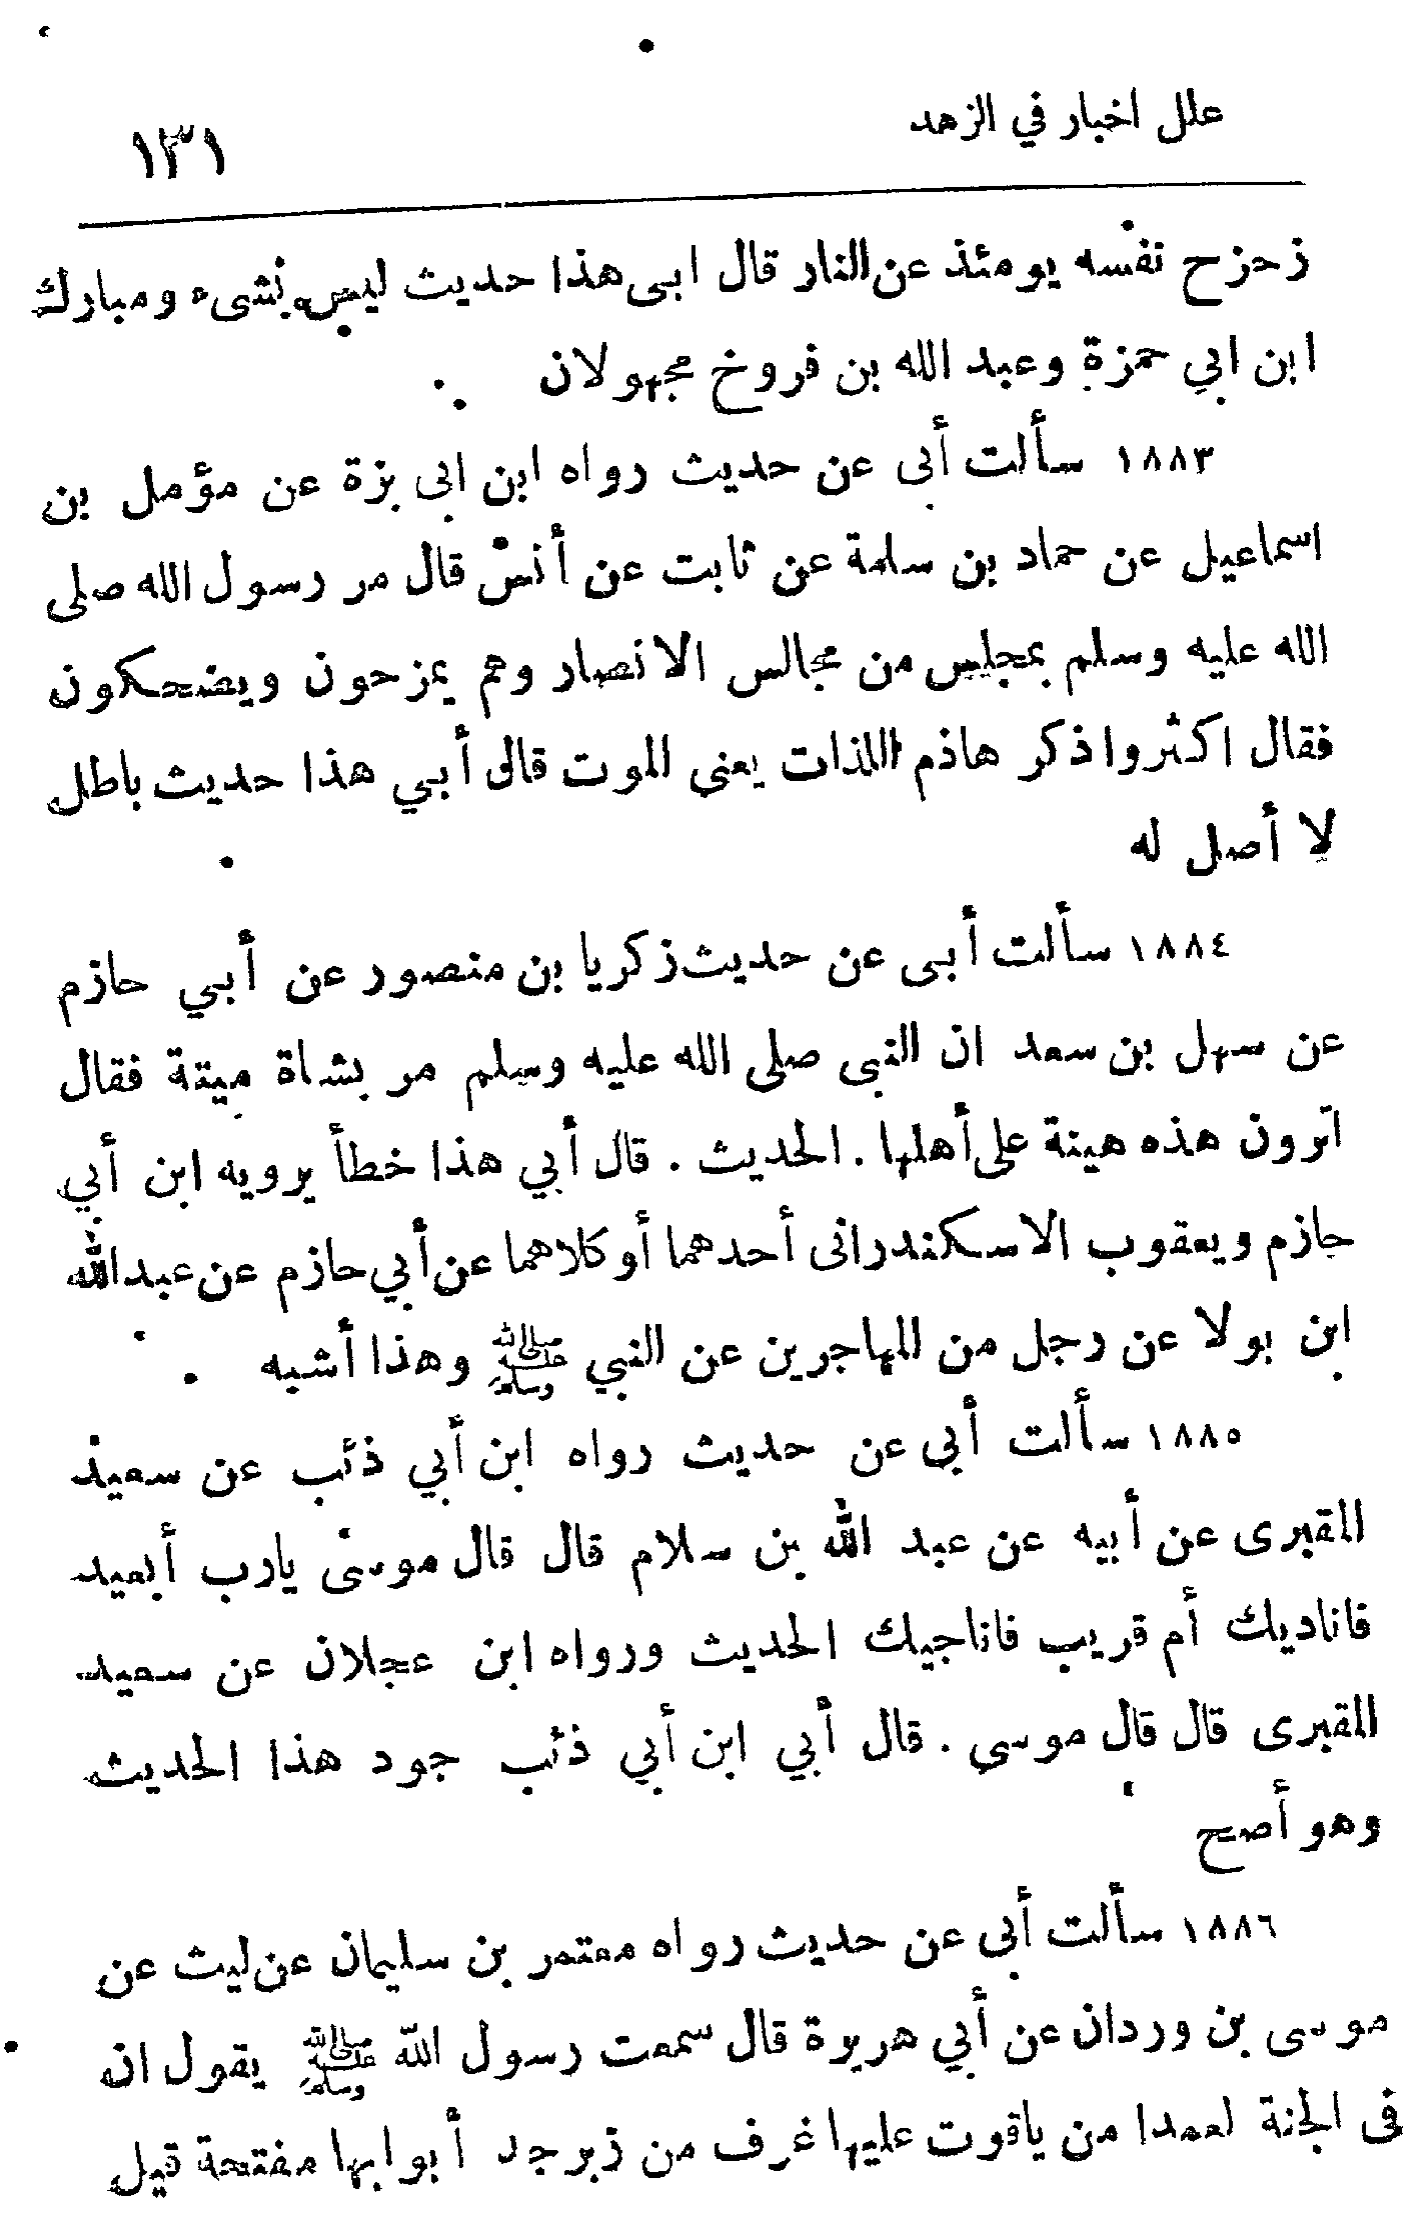 علل اخبار في الزهد
١٣١
زحزح نفسه يومئذ عن النار قال ابى هذا حديث ليس بشىء ومبارك
ابن ابي حمزة وعبد الله بن فروخ مجهولان .
١٨٨٣ سألت أبى عن حديث رواه ابن ابى بزة عن مؤمل بن
اسماعيل عن حماد بن سلمة عن ثابت عن أنس قال مر رسول الله صلى
الله عليه وسلم بمجلس من مجالس الانصار وهم يمزحون ويضحكون
فقال اكثروا ذكر هاذم اللذات يعنى الموت قال أبي هذا حديث باطل
لا أصل له
١٨٨٤ سألت أبى عن حديث زكريا بن منصور عن أبي حازم
عن سهل بن سعد ان النبى صلى الله عليه وسلم مر بشاة ميتة فقال
اترون هذه هينة على أهلها . الحديث . قال أبي هذا خطأ يرويه ابن أبي
حازم ويعقوب الاسكندرانى أحدهما أو كلاهما عن أبي حازم عن عبد الله
ابن بولا عن رجل من المهاجرين عن النبي ﷺ وهذا أشبه .
١٨٨٥ سألت أبي عن حديث رواه ابن أبي ذئب عن سعيد
المقبرى عن أبيه عن عبد الله بن سلام قال قال موسى يارب أبعيد
فاناديك أم قريب فاناجيك الحديث ورواه ابن عجلان عن سعيد
المقبرى قال قال موسى . قال أبي ابن أبي ذئب جود هذا الحديث
وهو أصح
١٨٨٦ سألت أبى عن حديث رواه معتمر بن سليمان عن ليث عن
موسى بن وردان عن أبي هريرة قال سمعت رسول الله ﷺ يقول ان
فى الجنة لعمدا من ياقوت عليها غرف من زبرجد أبوابها مفتحة قيل